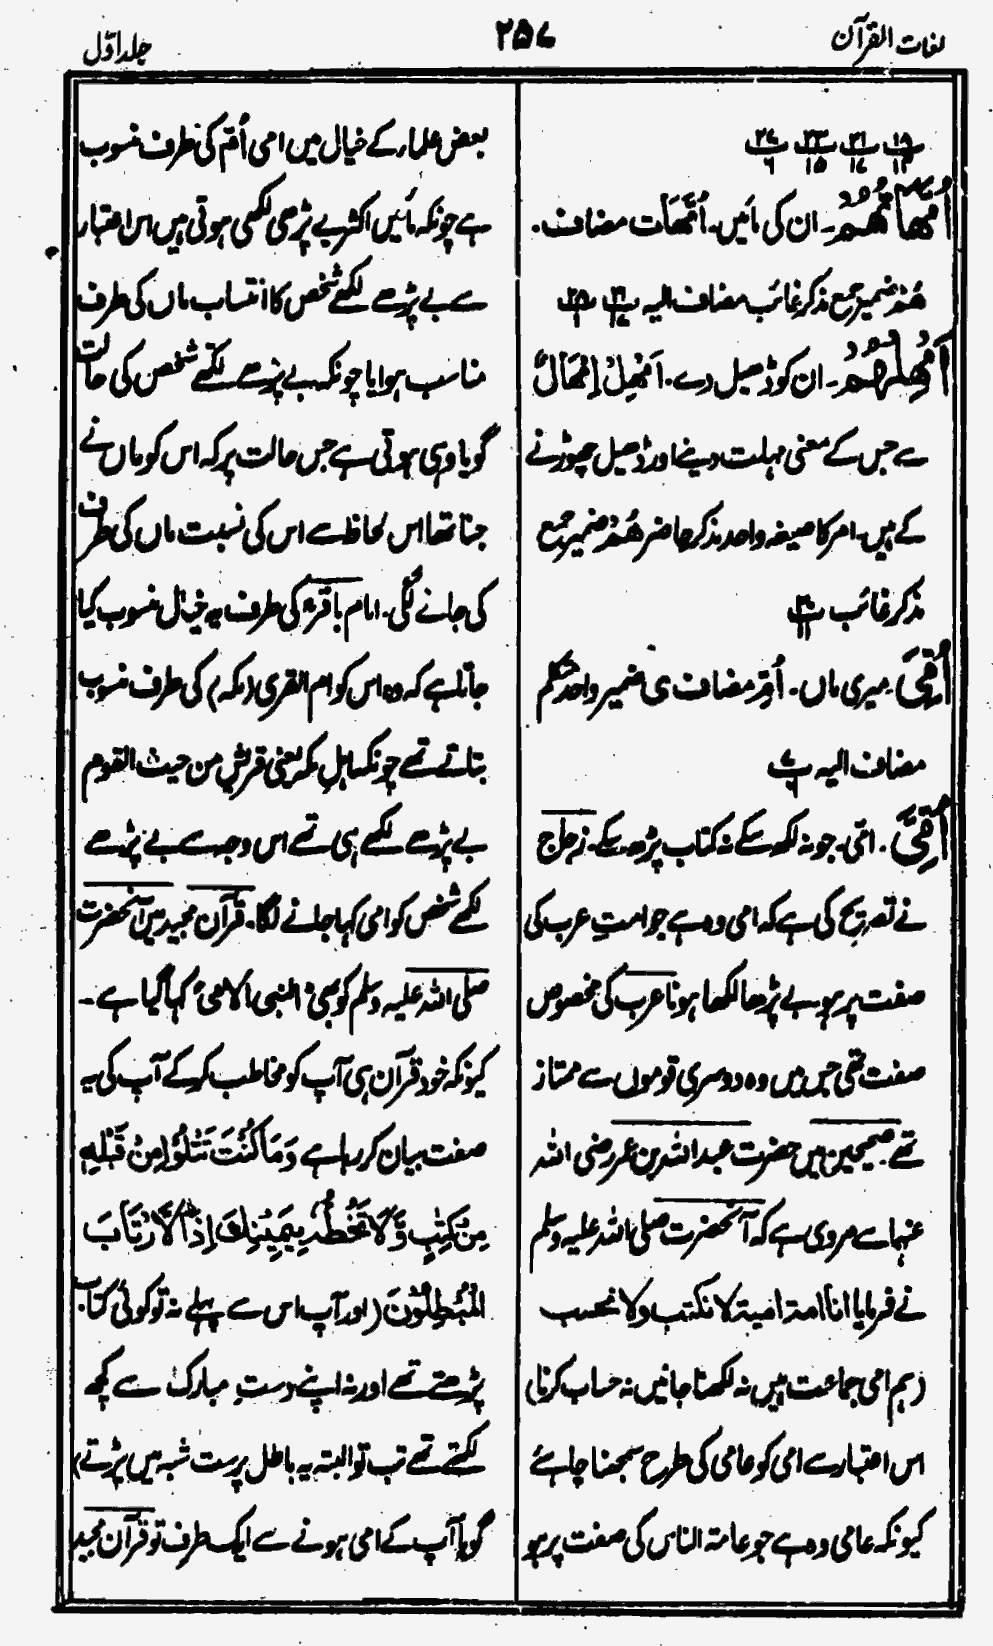 لغات القرآن
۲۵۷
جلد اوّل
۱۸/۱۲ ۲۱/۱۷ ۲۳/۱۵ ۲۷/۶
اُمَّهَاتُهُمْ۔ ان کی مائیں۔ اُمَّهَات مضاف۔
هُمْ ضمیر جمع مذکر غائب مضاف الیہ
اَمْهِلْهُمْ۔ ان کو ڈھیل دے۔ اَمْهِلْ اِمْهَالٌ
سے جس کے معنی مہلت دینے اور ڈھیل چھوڑنے
کے ہیں۔ امر کا صیغہ واحد مذکر حاضر هُمْ ضمیر جمع
مذکر غائب
اُمِّیْ۔ میری ماں۔ اُمّ مضاف ی ضمیر واحد متکلم
مضاف الیہ
اُمِّیَّ۔ امّی۔ جو نہ لکھ سکے نہ کتاب پڑھ سکے۔ زجاج
نے تصریح کی ہے کہ امی وہ ہے جو امتِ عرب کی
صفت پر ہو بے پڑھا لکھا ہونا عرب کی مخصوص
صفت تھی جس میں وہ دوسری قوموں سے ممتاز
تھے۔ صحیحین میں حضرت عبداللہ بن عمر رضی اللہ
عنہما سے مروی ہے کہ آنحضرت صلی اللہ علیہ وسلم
نے فرمایا انا امۃ امیۃ لا نکتب ولا نحسب
(ہم امی جماعت ہیں نہ لکھنا جانیں نہ حساب کرنا)
اس اعتبار سے امی کو عامی کی طرح سمجھنا چاہئے
کیونکہ عامی وہ ہے جو عامۃ الناس کی صفت پر ہو
بعض علماء کے خیال میں امی اُمّ کی طرف منسوب
ہے چونکہ مائیں اکثر بے پڑھی لکھی ہوتی ہیں اس اعتبار
سے بے پڑھے لکھے شخص کا انتساب ماں کی طرف
مناسب ہوا یا چونکہ بے پڑھے لکھے شخص کی حالت
گویا وہی ہوتی ہے جس حالت پر کہ اس کو ماں نے
جنا تھا اس لحاظ سے اس کی نسبت ماں کی طرف
کی جانے لگی۔ امام باقرؒ کی طرف یہ خیال منسوب کیا
جاتا ہے کہ وہ اس کو ام القری (مکہ) کی طرف منسوب
بتاتے تھے چونکہ اہلِ مکہ یعنی قریش من حیث القوم
بے پڑھے لکھے ہی تھے اس وجہ سے بے پڑھے
لکھے شخص کو امی کہا جانے لگا۔ قرآن مجید میں آنحضرت
صلی اللہ علیہ وسلم کو بھی "النبی الامی" کہا گیا ہے۔
کیونکہ خود قرآن ہی آپ کو مخاطب کر کے آپ کی یہ
صفت بیان کر رہا ہے وَمَا كُنْتَ تَتْلُوْا مِنْ قَبْلِهٖ
مِنْ كِتٰبٍ وَّلَا تَخُطُّهٗ بِيَمِيْنِكَ اِذًا لَّارْتَابَ
الْمُبْطِلُوْنَ (اور آپ اس سے پہلے نہ تو کوئی کتاب
پڑھتے تھے اور نہ اپنے دستِ مبارک سے کچھ
لکھتے تھے تب تو البتہ یہ باطل پرست شبہ میں پڑتے)
گویا آپ کے امی ہونے سے ایک طرف تو قرآن مجید